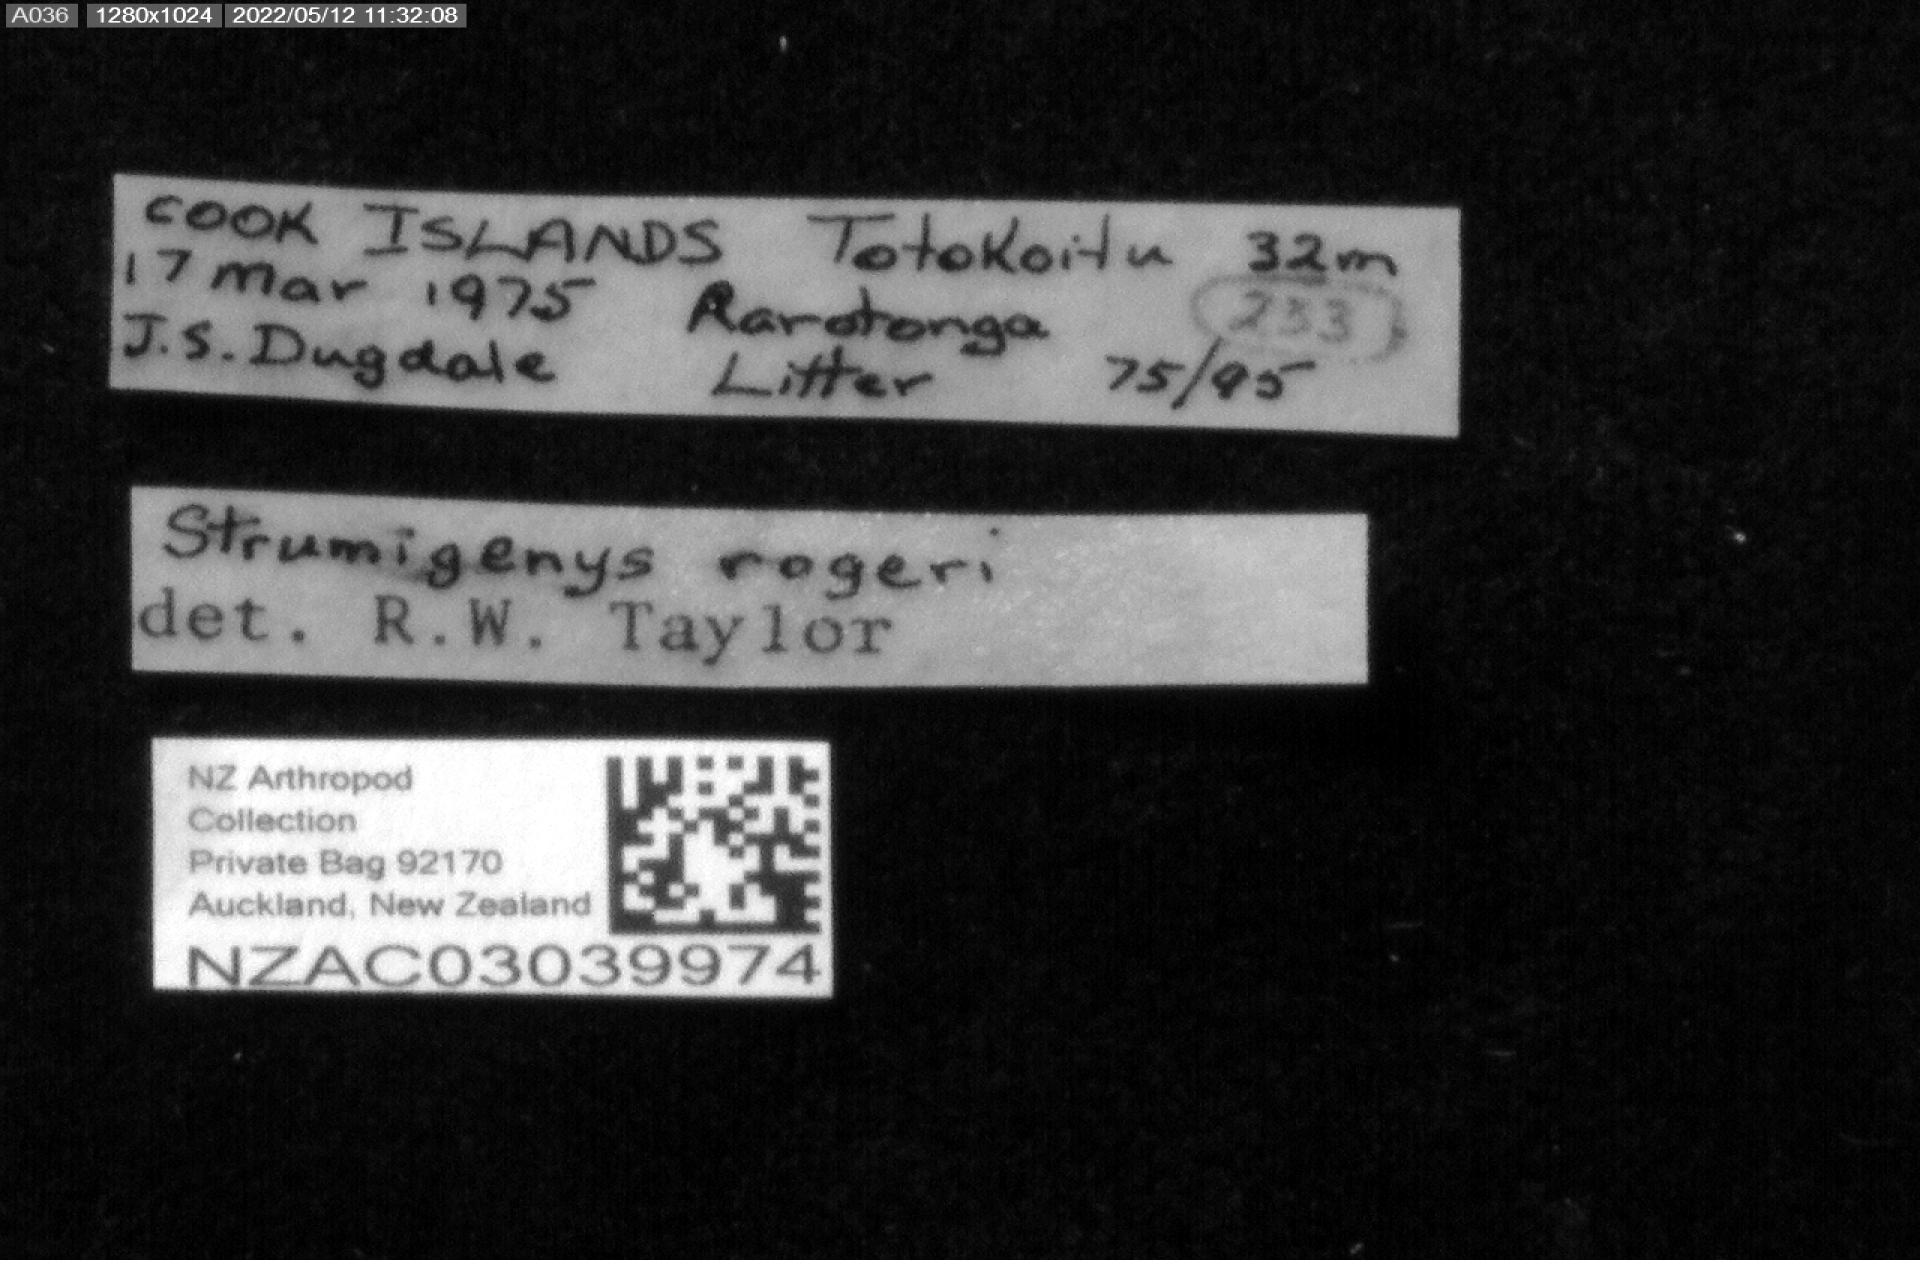 A036 1280x1024 2022/05/12 11:32:08
COOK ISLANDS Totokoitu 32m
17 Mar 1975 Rarotonga 233
J.S. Dugdale Litter 75/95
Strumigenys rogeri
det. R.W. Taylor
NZ Arthropod
Collection
Private Bag 92170
Auckland, New Zealand
NZAC03039974